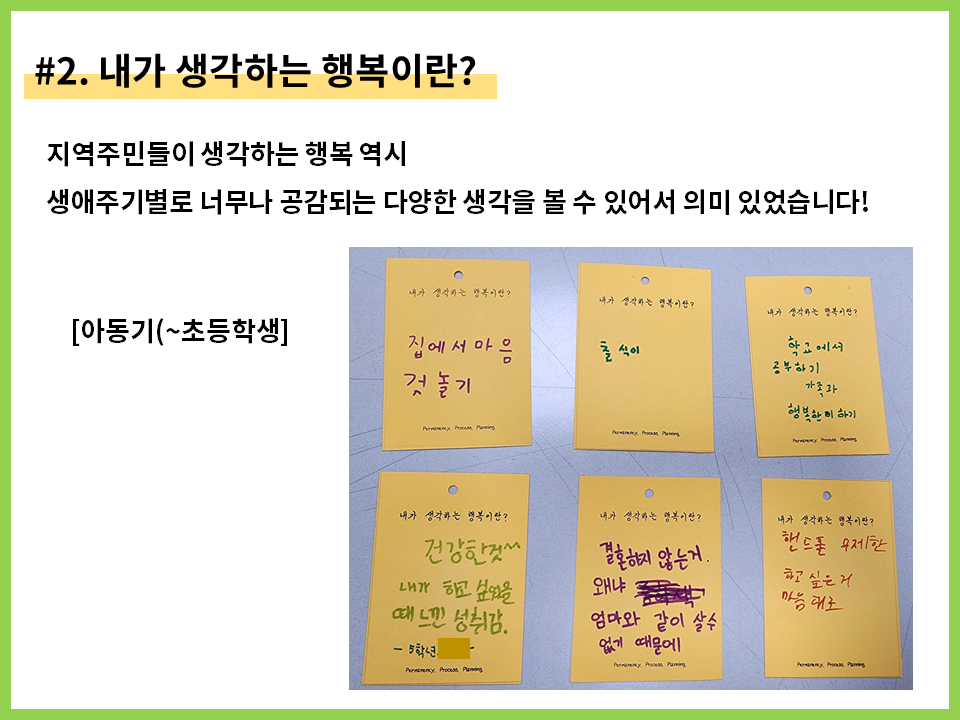 #2. 내가 생각하는 행복이란?
지역주민들이 생각하는 행복 역시
생애주기별로 너무나 공감되는 다양한 생각을 볼 수 있어서 의미 있었습니다!
[아동기(~초등학생]
내가 생각하는 행복이란?
집에서 마음
것 놀기
Permanency, Process, Planning.
내가 생각하는 행복이란?
출 식이
Permanency, Process, Planning.
내가 생각하는 행복이란?
학교에서
공부하기
가족과
행복한미하기
Permanency, Process, Planning.
내가 생각하는 행복이란?
건강한것~
내가 하고 싶었을
때 느낀 성취감.
- 5학년
Permanency, Process, Planning.
내가 생각하는 행복이란?
결혼하지 않는거.
왜냐
엄마와 같이 살수
없기 때문에
Permanency, Process, Planning.
내가 생각하는 행복이란?
핸드폰 무제한
하고 싶은거
마음대로
Permanency, Process, Planning.